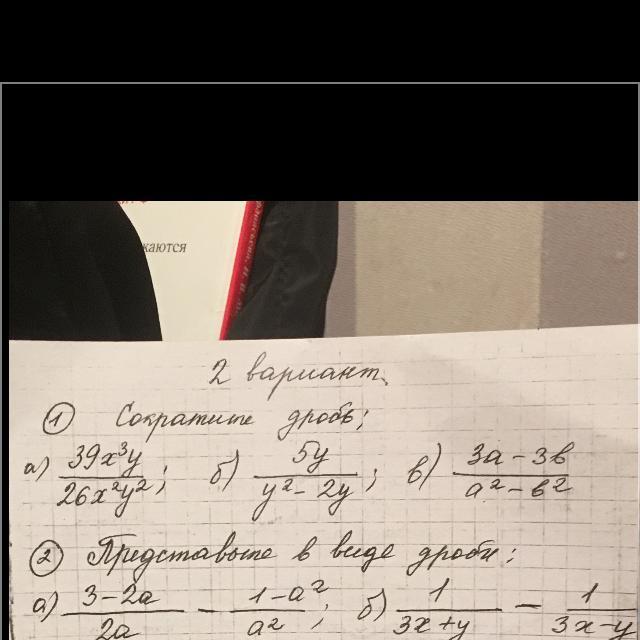 жаются
2 вариант.
① Сократите дробь:
а) 39x³y / 26x²y²; б) 5y / y² - 2y; в) 3a - 3b / a² - b²
② Представьте в виде дроби:
а) 3 - 2a / 2a - 1 - a² / a²; б) 1 / 3x + y - 1 / 3x - y